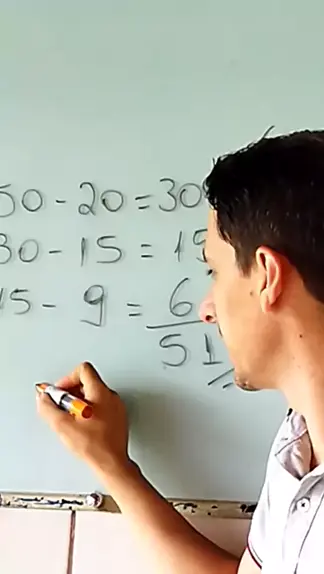 50 - 20 = 30
30 - 15 = 15
15 - 9 = 6
51